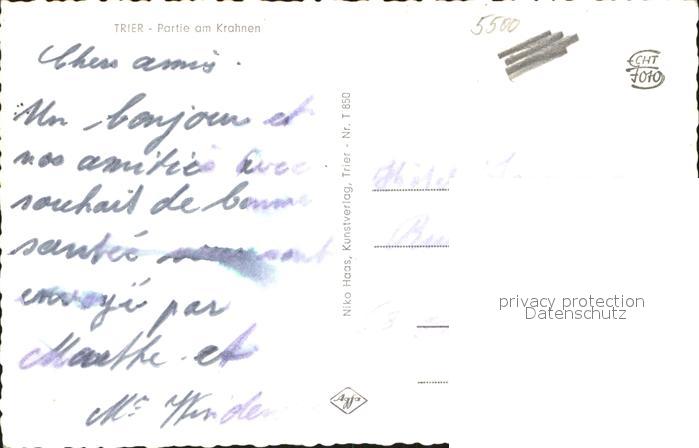 TRIER - Partie am Krahnen
5500
CHT
7010
Chers amis.
Un bonjour et
nos amitiés avec
souhait de bonne
santé sont
envoyé par
Marthe et
Mr Winden
Niko Haas, Kunstverlag, Trier - Nr. T 850
Hôtel
Agfa
privacy protection
Datenschutz